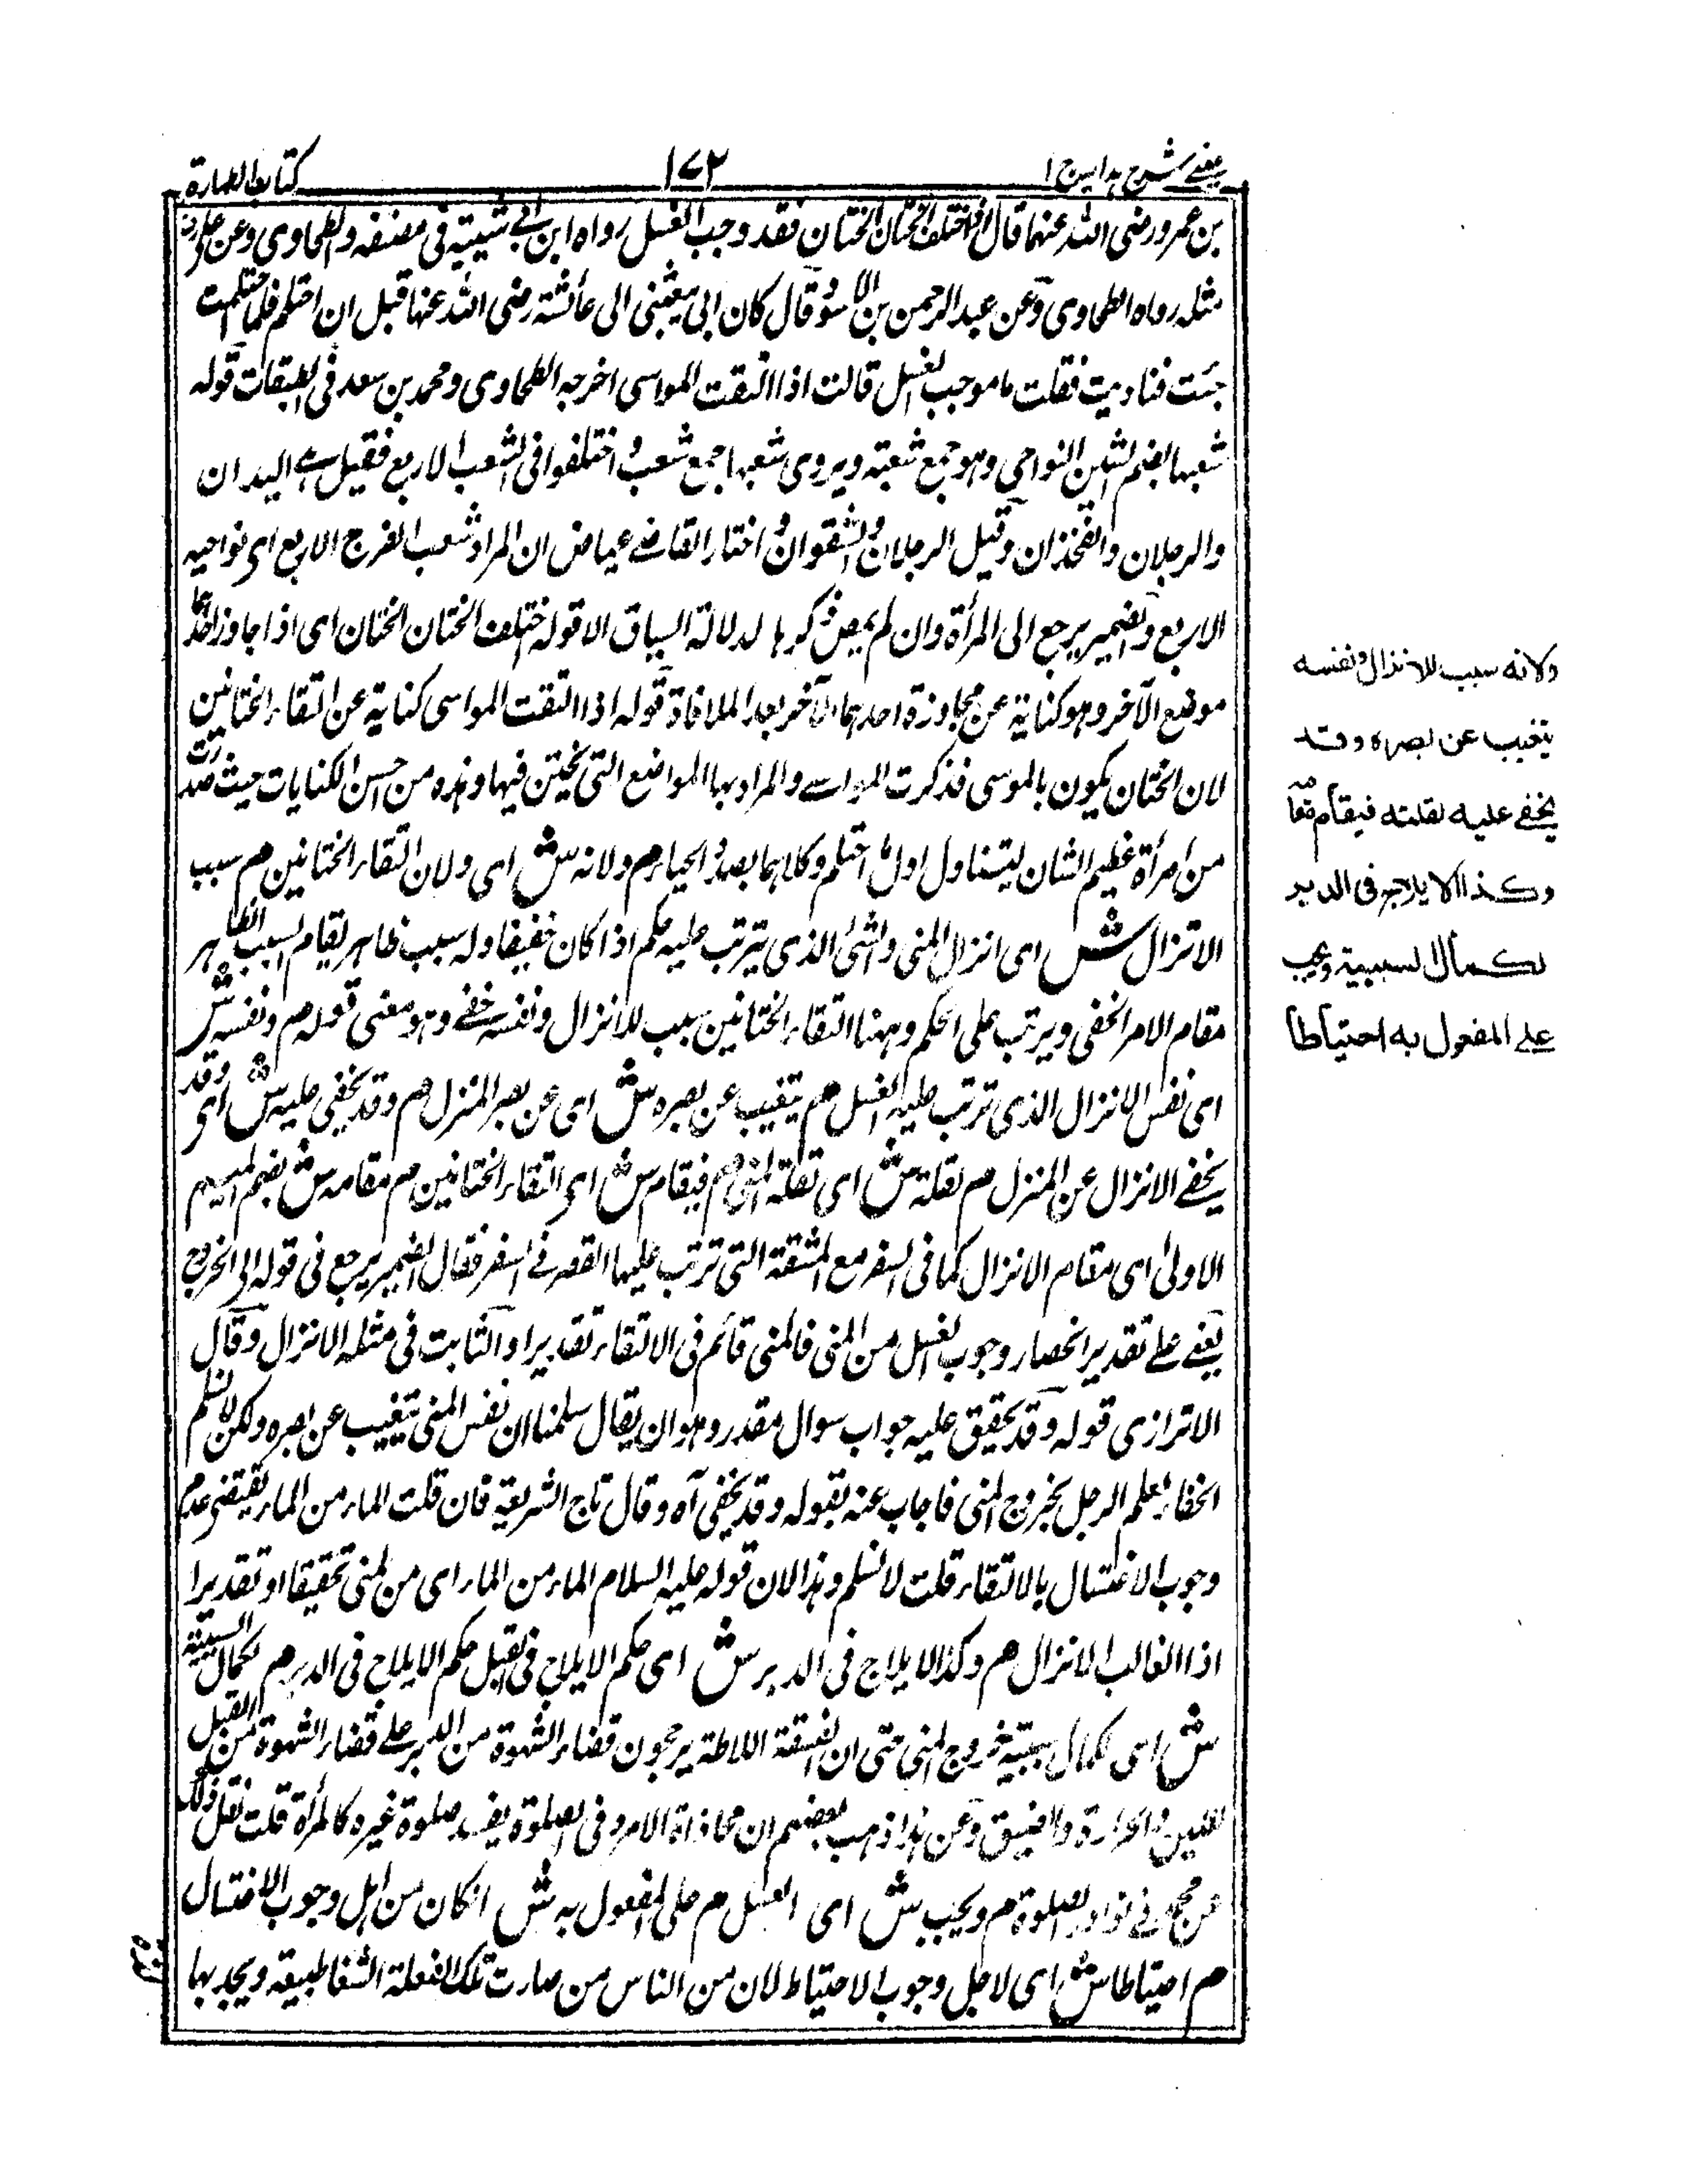 عینی شرح ہدایہ ج ١
١٧٢
كتاب الطهارة
بن عمرو رضی الله عنهما قال اذا اختلف الختان الختان فقد وجب الغسل رواه ابن ابی شیبة فی مصنفه والطحاوی وعن علی رض
مثله رواه الطحاوی وعن عبد الرحمن بن الاسود قال كان ابی یبعثنی الی عائشة رضی الله عنها قبل ان احتلم فلما احتلمت
جئت فنادیت فقلت ما موجب الغسل قالت اذا التقت المواسی اخرجه الطحاوی ومحمد بن سعد فی الطبقات قوله
شعبها بضم الشین النواحی وهو جمع شعبة ویروی شعبها جمع شعب واختلفوا فی الشعب الاربع فقیل هی الیدان
والرجلان والفخذان وقیل الرجلان والشفران واختار القاضی عیاض ان المراد شعب الفرج الاربع ای نواحیه
الاربع والضمیر یرجع الی المرأة وان لم یمض ذكرها لدلالة السیاق الا قوله اختلف الختان الختان ای اذا جاوز احدهما
موضع الآخر وهو كنایة عن مجاوزة احدهما الآخر بعد الملاقاة قوله اذا التقت المواسی كنایة عن التقاء الختانین
لان الختان یكون بالموسی فذكرت المواسی والمراد بها المواضع التی یختن فیها وهذه من حسن الكنایات حیث صدرت
من امرأة عظیم الشان لیتناول اول احتلم وكلاهما بصدد الحیاء م ولانه ش ای ولان التقاء الختانین م سبب
الانزال ش ای انزال المنی والشئ الذی یترتب علیه حكم اذا كان خفیفا وله سبب ظاهر یقام السبب الظاهر
مقام الامر الخفی ویرتب علی الحكم وههنا التقاء الختانین سبب للانزال ونفسه خفی وهو معنی قوله م ونفسه ش
ای نفس الانزال الذی ترتب علیه الغسل م یتغیب عن بصره ش ای عن بصر المنزل م وقد یخفی علیه ش ای وقد
یخفی الانزال عن المنزل م لقلة ش ای لقلة المنی م فیقام ش ای التقاء الختانین م مقامه ش بضم المیم
الاولی ای مقام الانزال كما فی السفر مع المشقة التی ترتب علیها القصر فی السفر فقال الضمیر یرجع فی قوله الی الخروج
یعنی علی تقدیر انحصار وجوب الغسل من المنی فالمنی قائم فی الالتقاء تقدیرا والثابت فی مثله الانزال وقال
الاترازی قوله وقد یحقیق علیه جواب سوال مقدر وهو ان یقال سلمنا ان نفس المنی یتغیب عن بصره ولكن لا نسلم
الخفاء لعلم الرجل بخروج المنی فاجاب عنه بقوله وقد یخفی آه وقال تاج الشریعة فان قلت الماء من الماء یقتضی عدم
وجوب الاغتسال بالالتقاء قلت لا نسلم وهذا لان قوله علیه السلام الماء من الماء ای من المنی تحقیقا او تقدیرا
اذا الغالب الانزال م وكذا الایلاج فی الدبر ش ای حكم الایلاج فی القبل حكم الایلاج فی الدبر م لكمال السببیة
ش ای لكمال سببیة خروج المنی حتی ان الفسقة اللاطة یرجحون قضاء الشهوة من الدبر علی قضاء الشهوة من القبل
للین والحرارة والضیق وعن هذا ذهب بعضهم ان محاذاة الامرد فی الصلوة یفسد صلوة غیره كالمرأة قلت نقل ذلك
عن محمد فی نوادر الصلوة م ویجب ش ای الغسل م علی المفعول به ش ان كان من اهل وجوب الاغتسال
م احتیاطا ش ای لاجل وجوب الاحتیاط لان من الناس من صارت تلك الفعلة الشنعا طبیعة ویجد بها
ولانه سبب للانزال ونفسه
یتغیب عن بصره وقد
یخفی علیه لقلته فیقام مقامه
وكذا الایلاج فی الدبر
لكمال السببیة ویجب
علی المفعول به احتیاطا